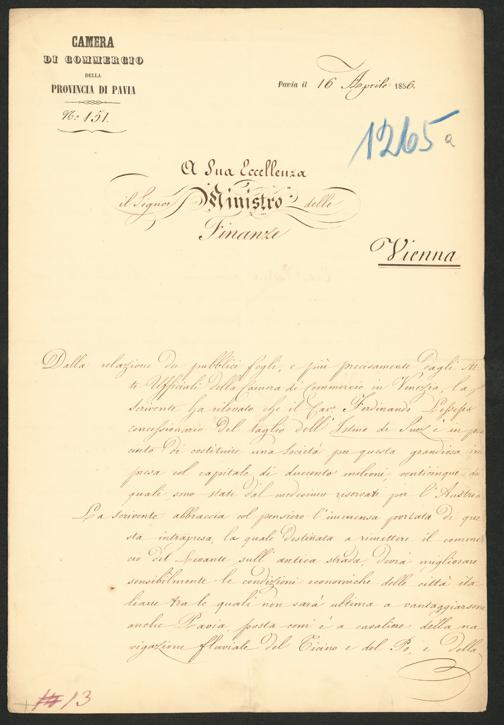 CAMERA
DI COMMERCIO
DELLA
PROVINCIA DI PAVIA
N.o 151.
Pavia il 16 Aprile 1856.
1265 a
A Sua Eccellenza
il Signor Ministro delle
Finanze
Vienna
Dalla relazione dei pubblici fogli, e più precisamente dagli At
ti Ufficiali della Camera di Commercio in Venezia, la
scrivente ha rilevato che il Cav. Ferdinando Lesseps
concessionario del taglio dell'Istmo di Suez è in pro
cinto di costituire una Società per questa grandiosa im
presa col capitale di duecento milioni, venticinque dei
quali sono stati dal medesimo riservati per l'Austria
La scrivente abbraccia col pensiero l'immensa portata di que
sta intrapresa, la quale destinata a rimettere il commer
cio del Levante sull'antica strada, dovrà migliorare
sensibilmente le condizioni economiche delle città ita
liane tra le quali non sarà ultima a vantaggiarsene
anche Pavia, posta com'è a cavaliere della na
vigazione fluviale del Ticino e del Po, e delle
13